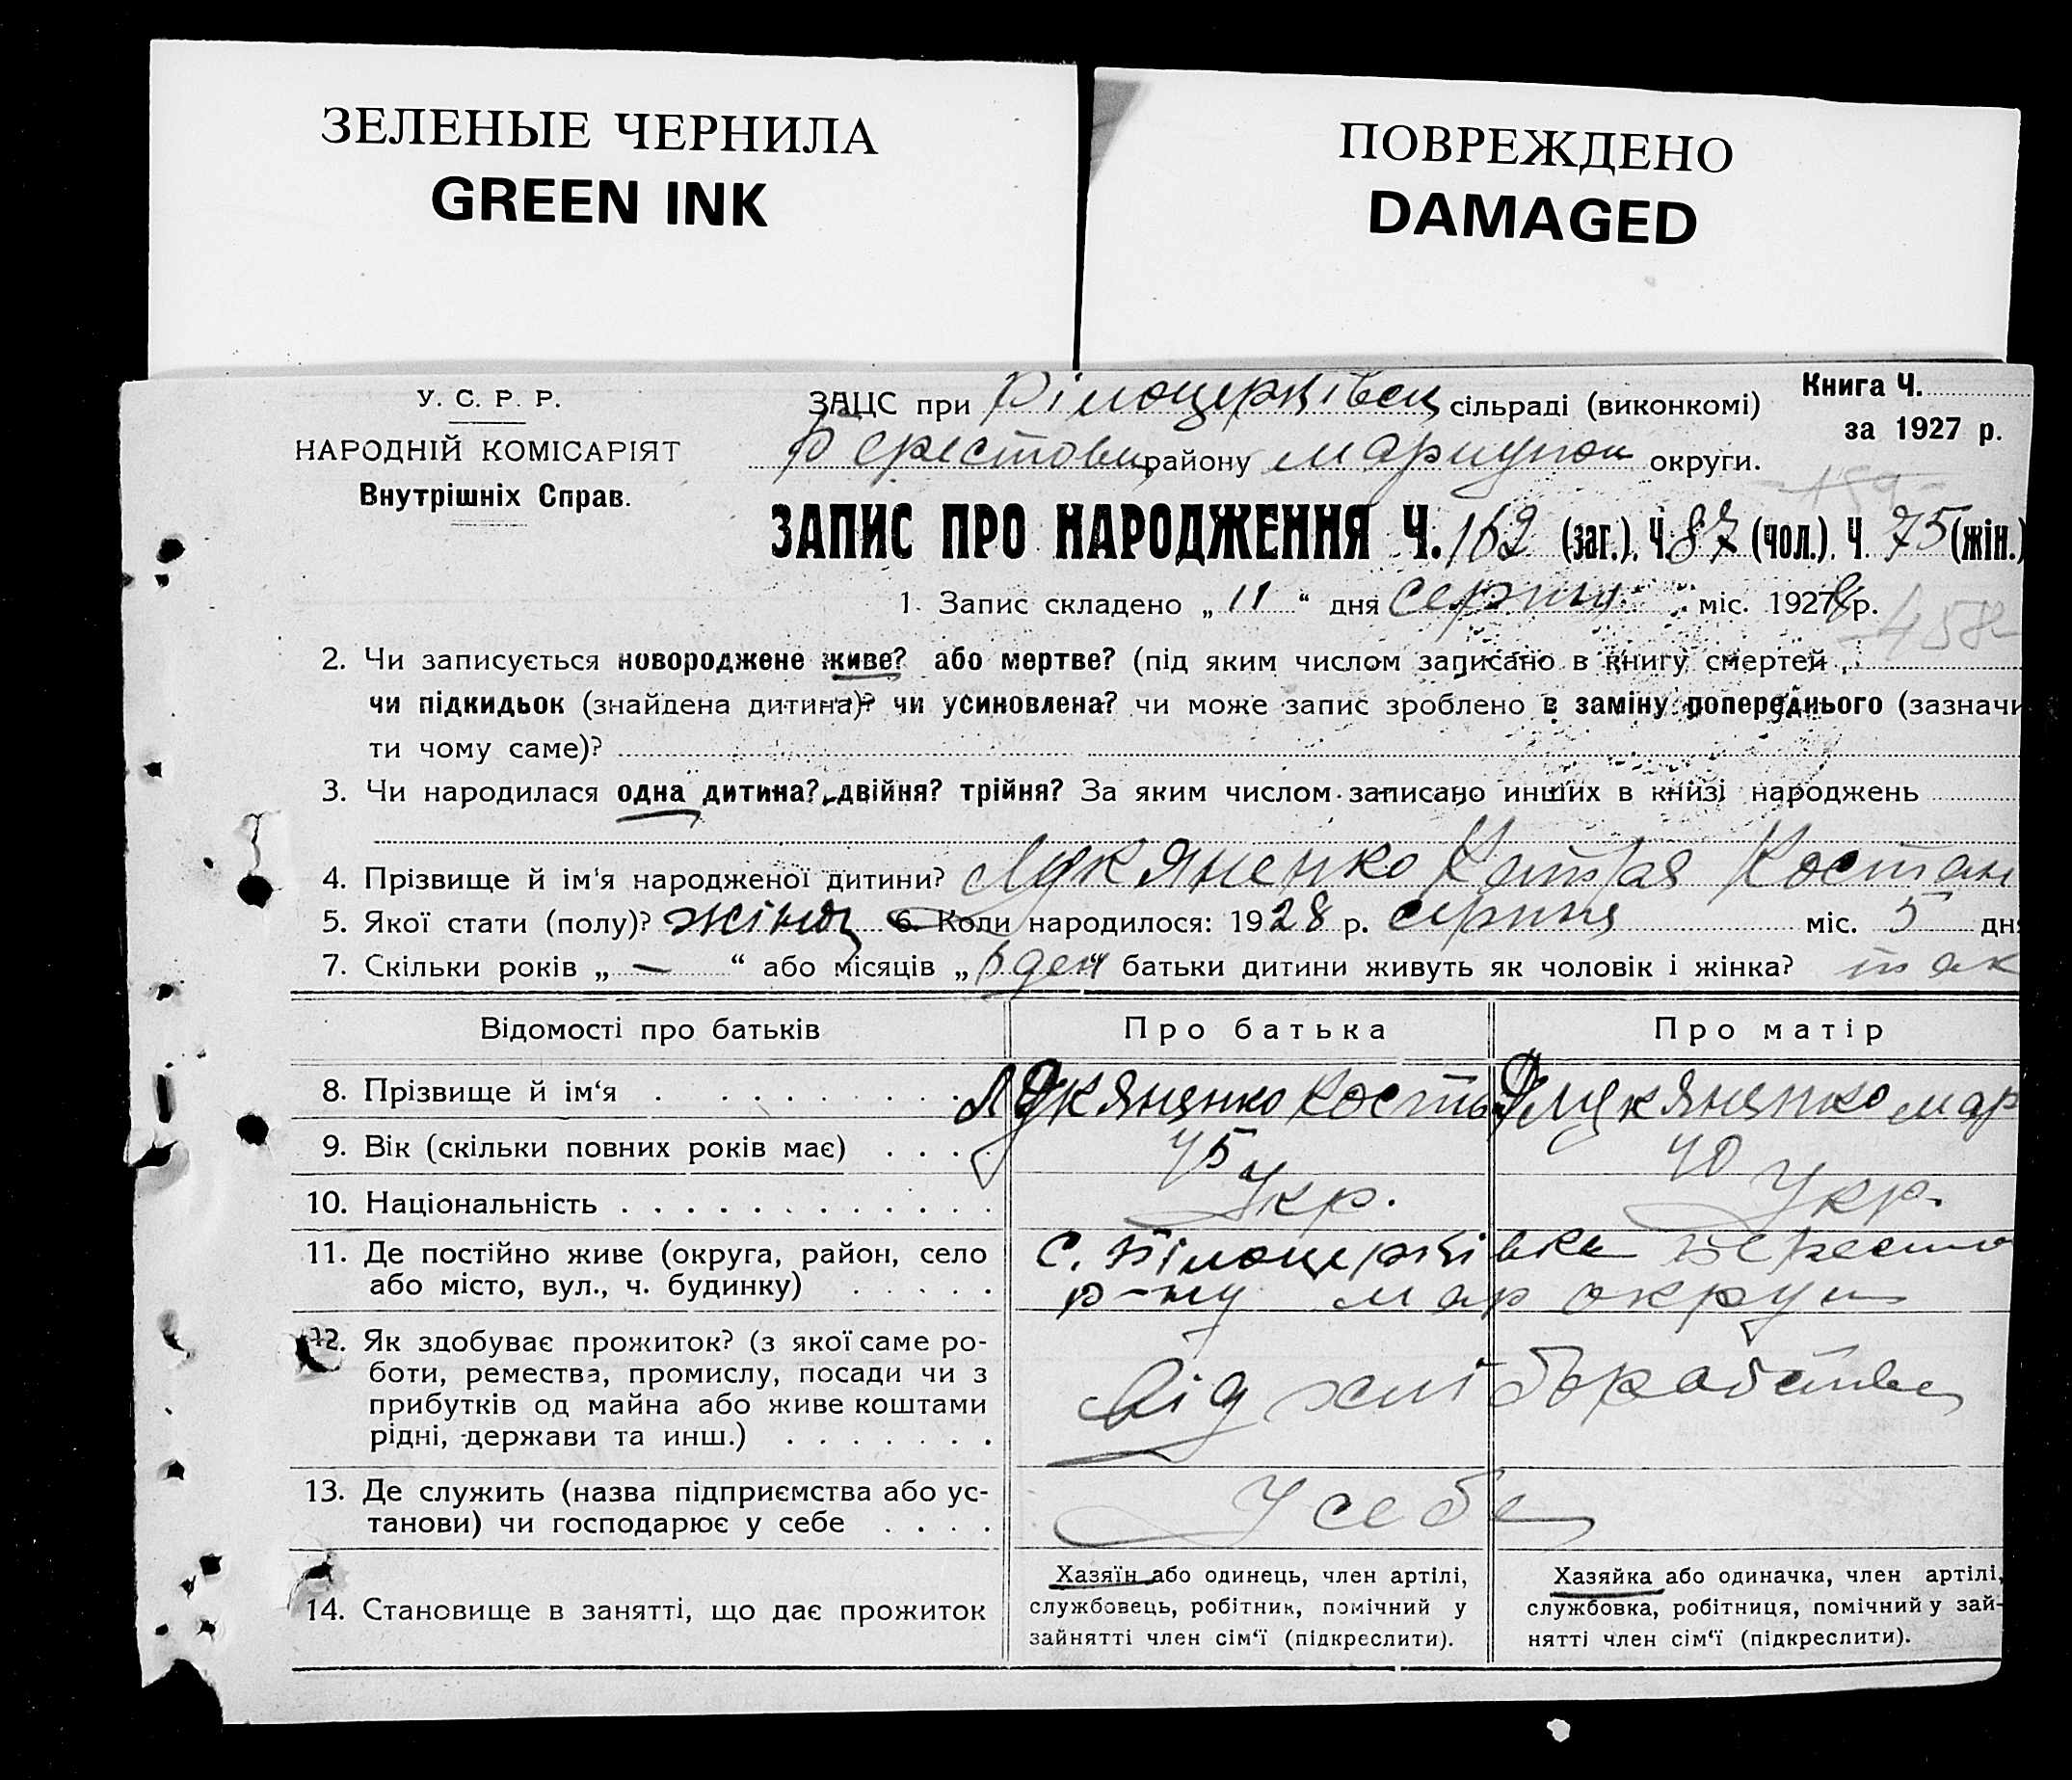 ЗЕЛЕНЫЕ ЧЕРНИЛА
GREEN INK
ПОВРЕЖДЕНО
DAMAGED
У. С. Р. Р.
НАРОДНІЙ КОМІСАРІЯТ
Внутрішніх Справ.
ЗАЦС при Білоцерківец сільраді (виконкомі)
Книга Ч.
за 1927 р.
Берестовец району Мариупол округи.
159
ЗАПИС ПРО НАРОДЖЕННЯ Ч. 162 (заг.). Ч. 87 (чол.). Ч. 75 (жін.)
1. Запис складено „ 11 “ дня серпня міс. 1928 р.
458
2. Чи записується новороджене живе? або мертве? (під яким числом записано в книгу смертей
чи підкидьок (знайдена дитина)? чи усиновлена? чи може запис зроблено в заміну попереднього (зазначи
ти чому саме)?
3. Чи народилася одна дитина? двійня? трійня? За яким числом записано инших в книзі народжень
4. Прізвище й ім'я народженої дитини? Лукяненко Катря Костан
5. Якої стати (полу)? жіноч 6. Коли народилося: 1928 р. серпня міс. 5 дня
7. Скільки років „ — “ або місяців „ ден “ батьки дитини живуть як чоловік і жінка? так
Відомості про батьків
Про батька
Про матір
8. Прізвище й ім‘я Лукяненко Кость Лукяненко Мар
9. Вік (скільки повних років має) 45 40
10. Національність Укр. Укр.
11. Де постійно живе (округа, район, село с. Білоцерківка Бересто
або місто, вул., ч. будинку) р-ну мар округи
12. Як здобуває прожиток? (з якої саме ро-
боти, ремества, промислу, посади чи з
прибутків од майна або живе коштами
рідні, держави та инш.)
від хліборобства
13. Де служить (назва підприємства або ус-
танови) чи господарює у себе
У себе
14. Становище в занятті, що дає прожиток
Хазяїн або одинець, член артілі,
службовець, робітник, помічний у
зайнятті член сім‘ї (підкреслити).
Хазяйка або одиначка, член артілі,
службовка, робітниця, помічний у зай-
нятті член сім‘ї (підкреслити).